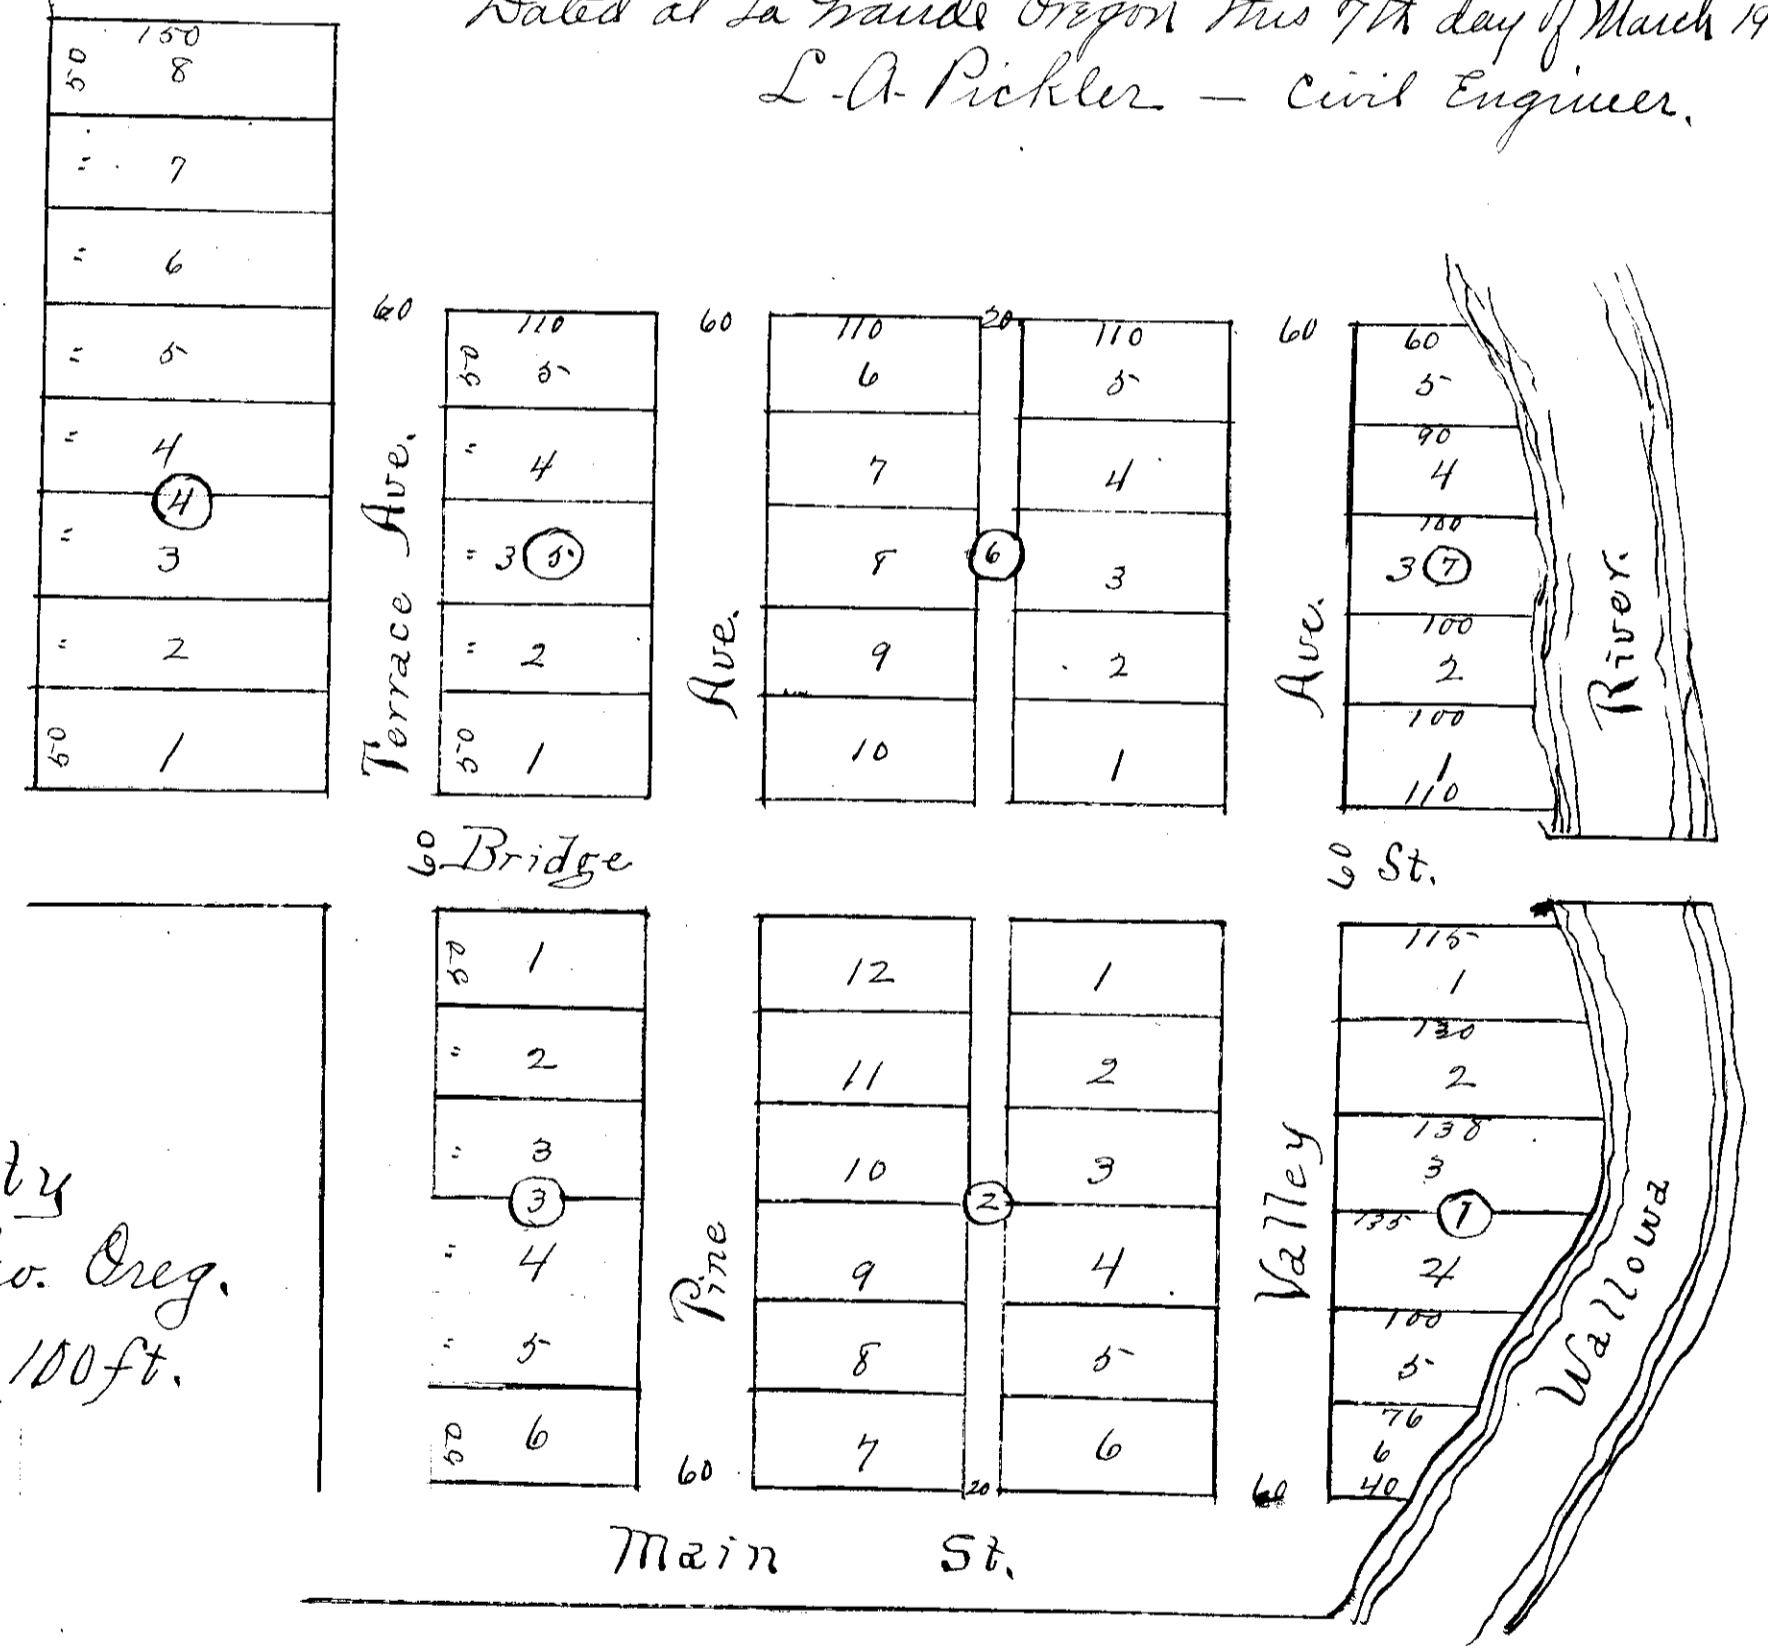 Dated at La Grande Oregon this 7th day of March 19
L. A. Pickler — Civil Engineer.
150
50 8
= 7
= 6
= 5
= 4
4
= 3
= 2
50 1
60
Terrace Ave.
110
50 5
= 4
= 3 5
= 2
50 1
60
Ave.
110
6
7
8
9
10
20
6
110
5
4
3
2
1
60
Ave.
60
5
90
4
100
3 7
100
2
100
1
110
River.
60 Bridge
60 St.
50 1
= 2
= 3
3
= 4
= 5
50 6
Pine
60
12
11
10
9
8
7
2
20
1
2
3
4
5
6
Valley
60
115
1
130
2
138
3
135 1
4
100
5
76
6
40
Wallowa
ty
o. Oreg.
100 ft.
Main St.